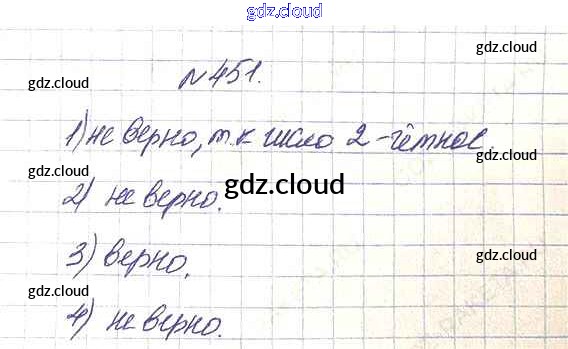 gdz.cloud
gdz.cloud
gdz.cloud
№451.
1) не верно, т.к число 2 - чётное.
gdz.cloud
gdz.cloud
gdz.cloud
2) не верно.
3) верно.
gdz.cloud
gdz.cloud
4) не верно.
gdz.cloud
gdz.cloud